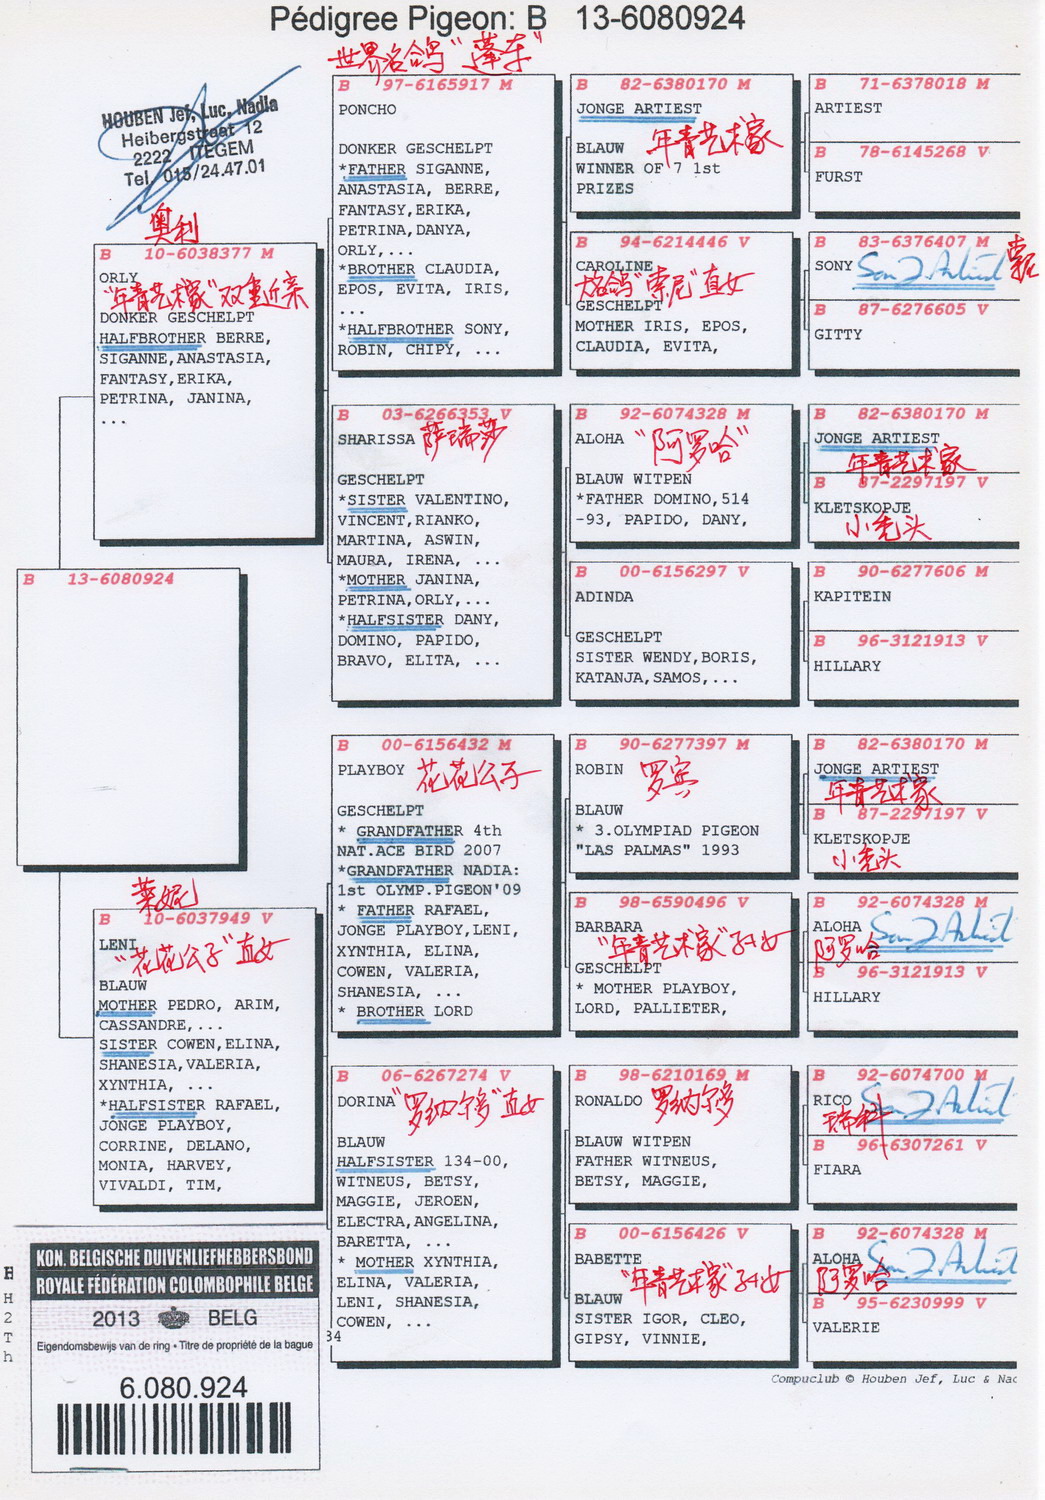 Pédigree Pigeon: B 13-6080924
HOUBEN Jef, Luc, Nadia
Heibergstraat 12
2222 ITEGEM
Tel. 015/24.47.01
奥利
B 10-6038377 M
ORLY
"年青艺术家"双重近亲
DONKER GESCHELPT
HALFBROTHER BERRE,
SIGANNE,ANASTASIA,
FANTASY,ERIKA,
PETRINA, JANINA,
...
B 13-6080924
莱妮
B 10-6037949 V
LENI
"花花公子"直女
BLAUW
MOTHER PEDRO, ARIM,
CASSANDRE,...
SISTER COWEN,ELINA,
SHANESIA,VALERIA,
XYNTHIA, ...
*HALFSISTER RAFAEL,
JONGE PLAYBOY,
CORRINE, DELANO,
MONIA, HARVEY,
VIVALDI, TIM,
世界名鸽"蓬车"
B 97-6165917 M
PONCHO
DONKER GESCHELPT
*FATHER SIGANNE,
ANASTASIA, BERRE,
FANTASY,ERIKA,
PETRINA,DANYA,
ORLY,...
*BROTHER CLAUDIA,
EPOS, EVITA, IRIS,
...
*HALFBROTHER SONY,
ROBIN, CHIPY, ...
B 03-6266353 V
SHARISSA 萨瑞莎
GESCHELPT
*SISTER VALENTINO,
VINCENT,RIANKO,
MARTINA, ASWIN,
MAURA, IRENA, ...
*MOTHER JANINA,
PETRINA,ORLY,...
*HALFSISTER DANY,
DOMINO, PAPIDO,
BRAVO, ELITA, ...
B 00-6156432 M
PLAYBOY 花花公子
GESCHELPT
* GRANDFATHER 4th
NAT.ACE BIRD 2007
*GRANDFATHER NADIA:
1st OLYMP.PIGEON'09
* FATHER RAFAEL,
JONGE PLAYBOY,LENI,
XYNTHIA, ELINA,
COWEN, VALERIA,
SHANESIA, ...
* BROTHER LORD
B 06-6267274 V
DORINA "罗纳尔多"直女
BLAUW
HALFSISTER 134-00,
WITNEUS, BETSY,
MAGGIE, JEROEN,
ELECTRA,ANGELINA,
BARETTA, ...
* MOTHER XYNTHIA,
ELINA, VALERIA,
LENI, SHANESIA,
COWEN, ...
34
B 82-6380170 M
JONGE ARTIEST
年青艺术家
BLAUW
WINNER OF 7 1st
PRIZES
B 94-6214446 V
CAROLINE
大名鸽"索尼"直女
GESCHELPT
MOTHER IRIS, EPOS,
CLAUDIA, EVITA,
B 92-6074328 M
ALOHA "阿罗哈"
BLAUW WITPEN
*FATHER DOMINO,514
-93, PAPIDO, DANY,
B 00-6156297 V
ADINDA
GESCHELPT
SISTER WENDY,BORIS,
KATANJA,SAMOS,...
B 90-6277397 M
ROBIN 罗宾
BLAUW
* 3.OLYMPIAD PIGEON
"LAS PALMAS" 1993
B 98-6590496 V
BARBARA
"年青艺术家"孙女
GESCHELPT
* MOTHER PLAYBOY,
LORD, PALLIETER,
B 98-6210169 M
RONALDO 罗纳尔多
BLAUW WITPEN
FATHER WITNEUS,
BETSY, MAGGIE,
B 00-6156426 V
BABETTE
"年青艺术家"孙女
BLAUW
SISTER IGOR, CLEO,
GIPSY, VINNIE,
B 71-6378018 M
ARTIEST
B 78-6145268 V
FURST
B 83-6376407 M
SONY 索尼
B 87-6276605 V
GITTY
B 82-6380170 M
JONGE ARTIEST
年青艺术家
B 87-2297197 V
KLETSKOPJE
小秃头
B 90-6277606 M
KAPITEIN
B 96-3121913 V
HILLARY
B 82-6380170 M
JONGE ARTIEST
年青艺术家
B 87-2297197 V
KLETSKOPJE
小秃头
B 92-6074328 M
ALOHA
阿罗哈
B 96-3121913 V
HILLARY
B 92-6074700 M
RICO
瑞科
B 96-6307261 V
FIARA
B 92-6074328 M
ALOHA
阿罗哈
B 95-6230999 V
VALERIE
Compuclub © Houben Jef, Luc & Nad
KON. BELGISCHE DUIVENLIEFHEBBERSBOND
ROYALE FÉDÉRATION COLOMBOPHILE BELGE
2013 BELG
Eigendomsbewijs van de ring • Titre de propriété de la bague
6.080.924
H
2
T
h